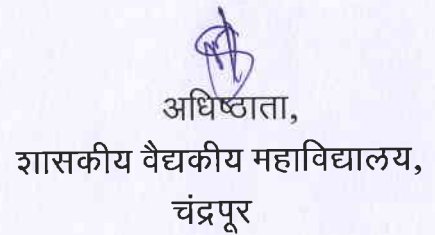 अधिष्ठाता,
शासकीय वैद्यकीय महाविद्यालय,
चंद्रपूर